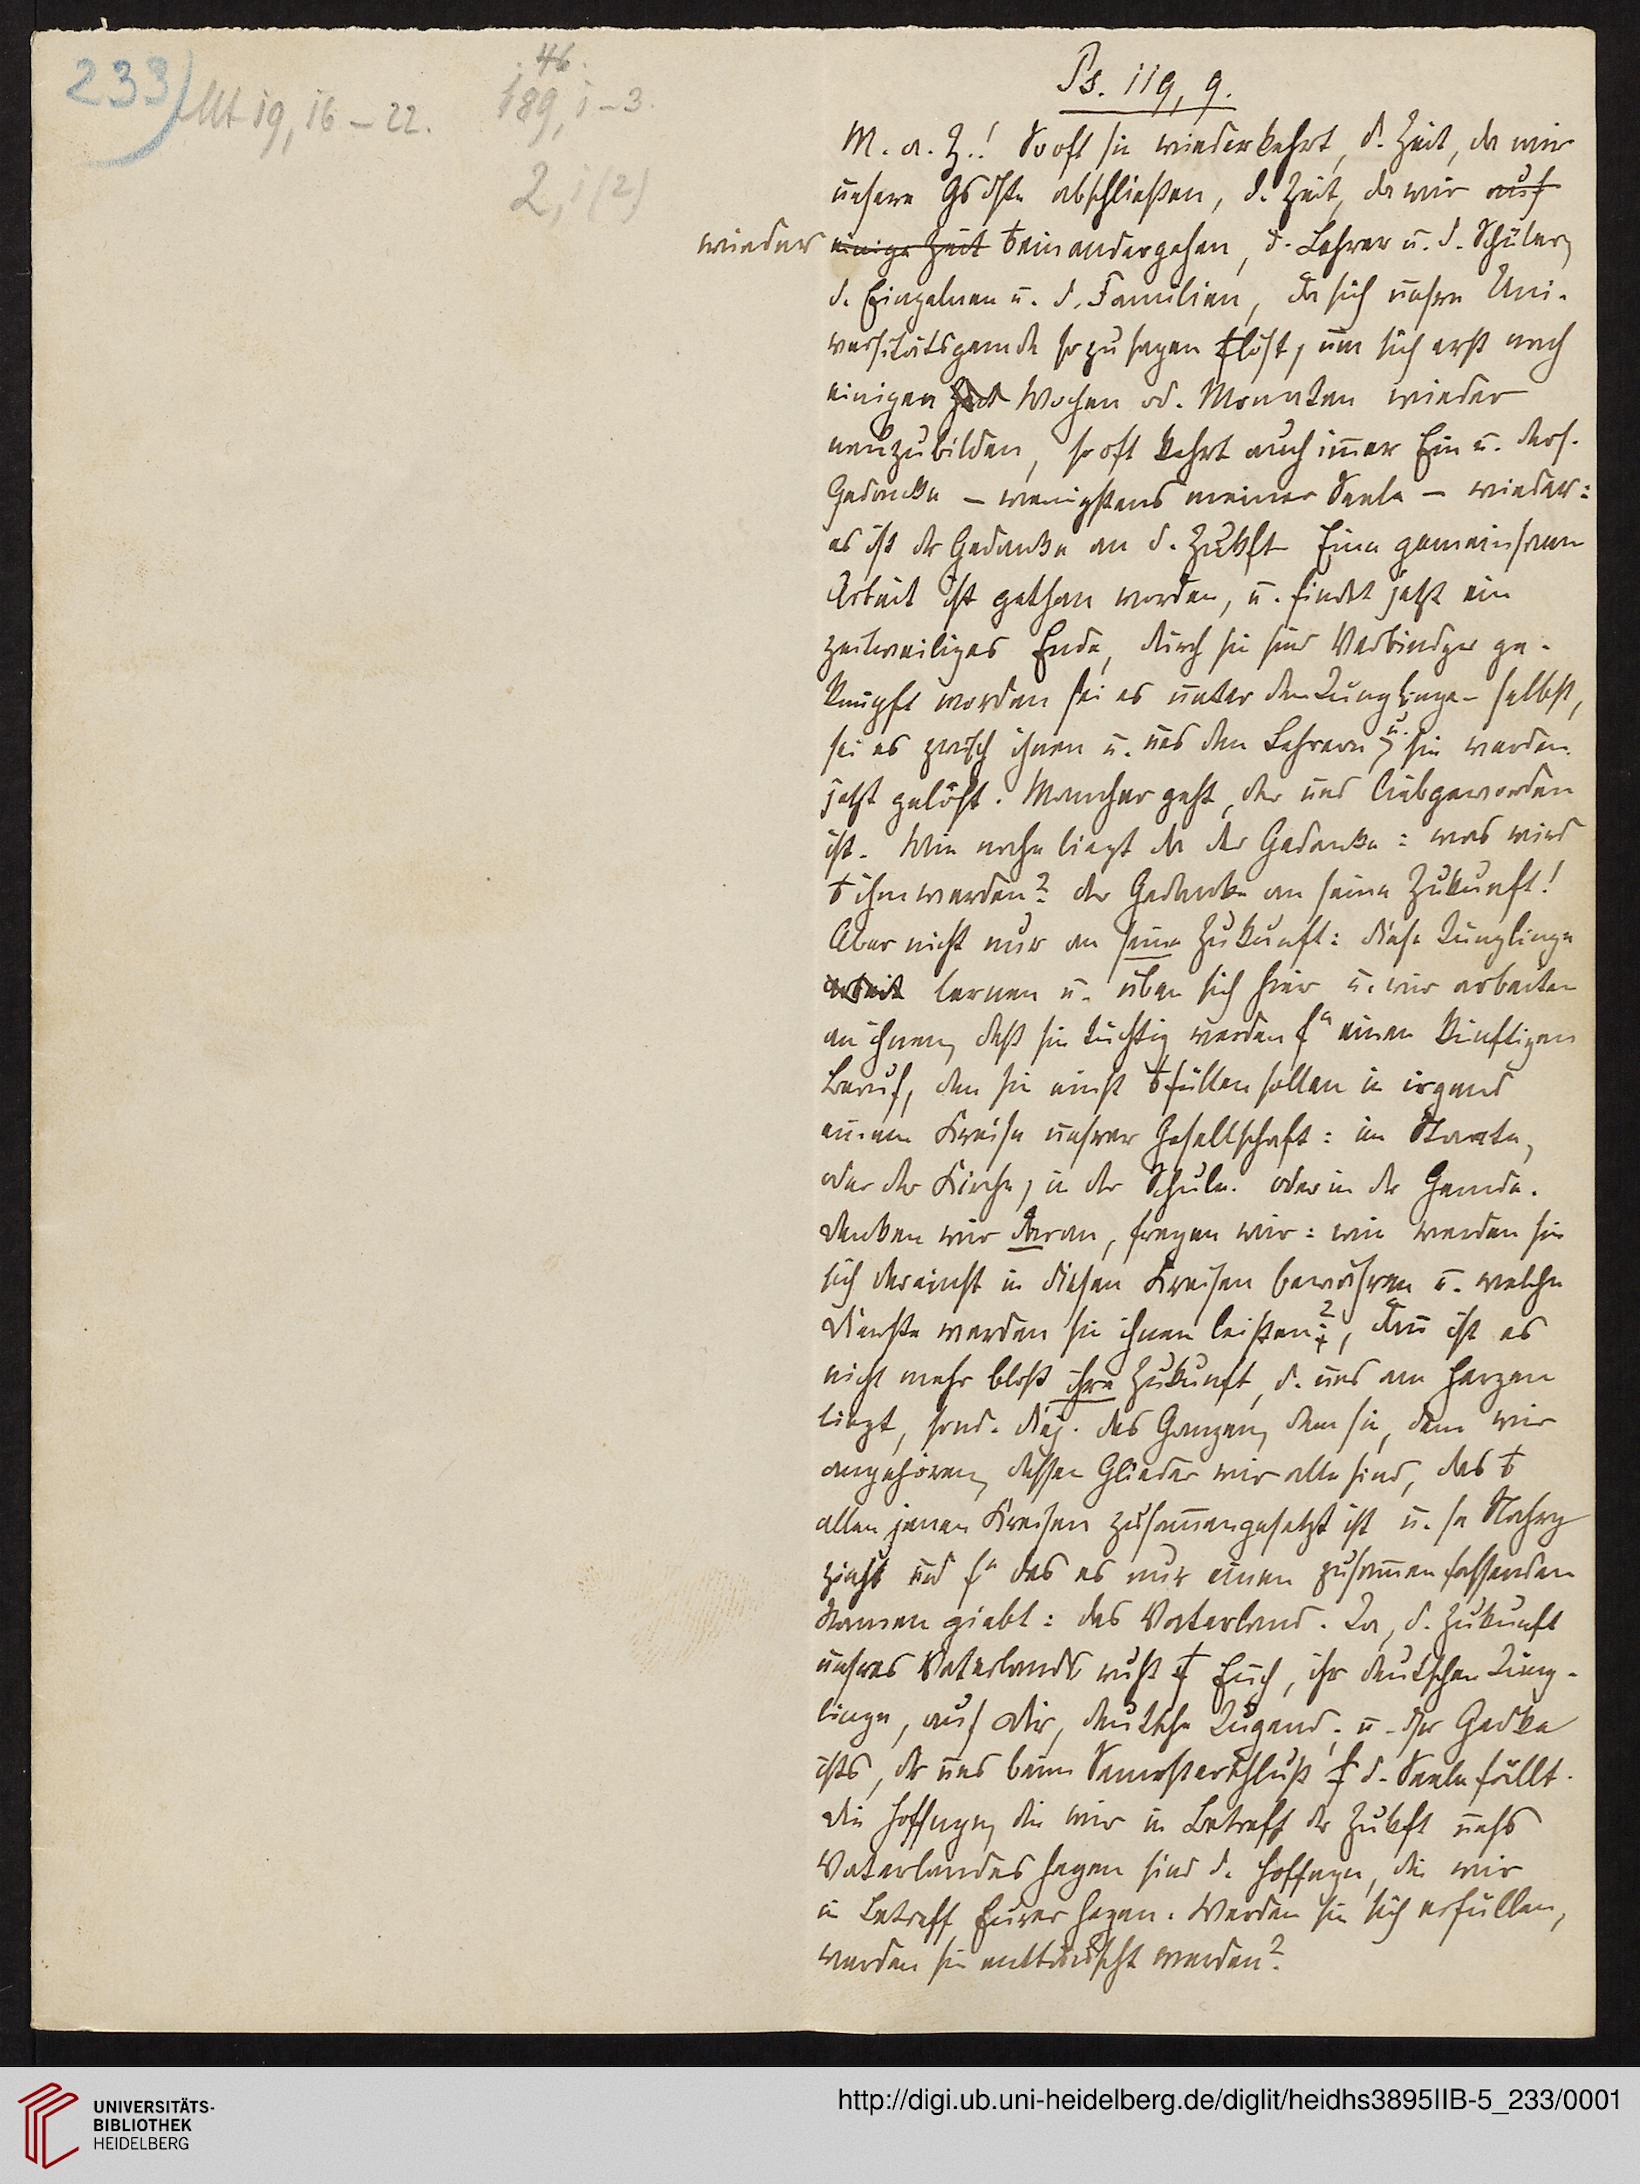 233)
Mt 19, 16-22.
46.
189, 1-3.
2, 1 (2)
Ps. 119, 9.
M. a. Z.! So oft sie wiederkehrt, d. Zeit, da wir
unsere Gdste abschließen, d. Zeit, da wir auf
wieder einige Zeit einandergehen, d. Lehrer u. d. Schüler,
d. Einzelnen u. d. Familien, da sich unsre Uni-
versitätsgemde so zu sagen löst, um sich erst nach
einigen Zeit Wochen od. Monaten wieder
neuzubilden, so oft kehrt auch im̅er Ein u. ders.
Gedanke – wenigstens meiner Seele – wieder:
es ist der Gedanke an d. Zukft. Eine gemeinsame
Arbeit ist gethan worden, u. findet jetzt ein
zeitweiliges Ende, durch sie sind Verbindgen ge-
knüpft worden sei es unter den Jünglingen selbst,
sei es zwisch ihnen u. uns den Lehrern, u. sie werden
jetzt gelöst. Mancher geht, der uns liebgeworden
ist. Wie nahe liegt da der Gedanke: was wird
ihm werden? der Gedanke an seine Zukunft!
Aber nicht nur an seine Zukunft: diese Jünglinge
arbeit lernen u. üben sich hier u. wir arbeiten
an ihnen, daß sie tüchtig werden f. einen künftigen
Beruf, den sie einst füllen sollen in irgend
einem Kreise unsrer Gesellschaft: im Staate,
oder der Kirche, in der Schule oder in der Gemde.
Denken wir daran, fragen wir: wie werden sie
sich dereinst in diesen Kreisen bewähren u. welche
Dienste werden sie ihnen leisten?, dan̅ ist es
nicht mehr bloß ihre Zukunft, d. uns am Herzen
liegt, sond. diej. des Ganzen, dem sie, dem wir
angehören, dessen Glieder wir alle sind, das
allen jenen Kreisen zusam̅engesetzt ist u. se Nahrg
zieht und f. das es nur einen zusam̅enfassenden
Namen giebt: das Vaterland. Ja, d. Zukunft
unsres Vaterlands ruht Euch, ihr deutschen Jüng-
linge, auf Dir, deutsche Jugend, u. der Gedke
ists, der uns beim Semesterschluß d. Seele fällt.
Die Hoffngen, die wir in Betreff der Zukft unsrs
Vaterlandes hegen sind d. Hoffngen, die wir
in Betreff Eurer hegen. Werden sie sich erfüllen,
werden sie enttäuscht werden?
UNIVERSITÄTS-
BIBLIOTHEK
HEIDELBERG
http://digi.ub.uni-heidelberg.de/diglit/heidhs3895IIB-5_233/0001